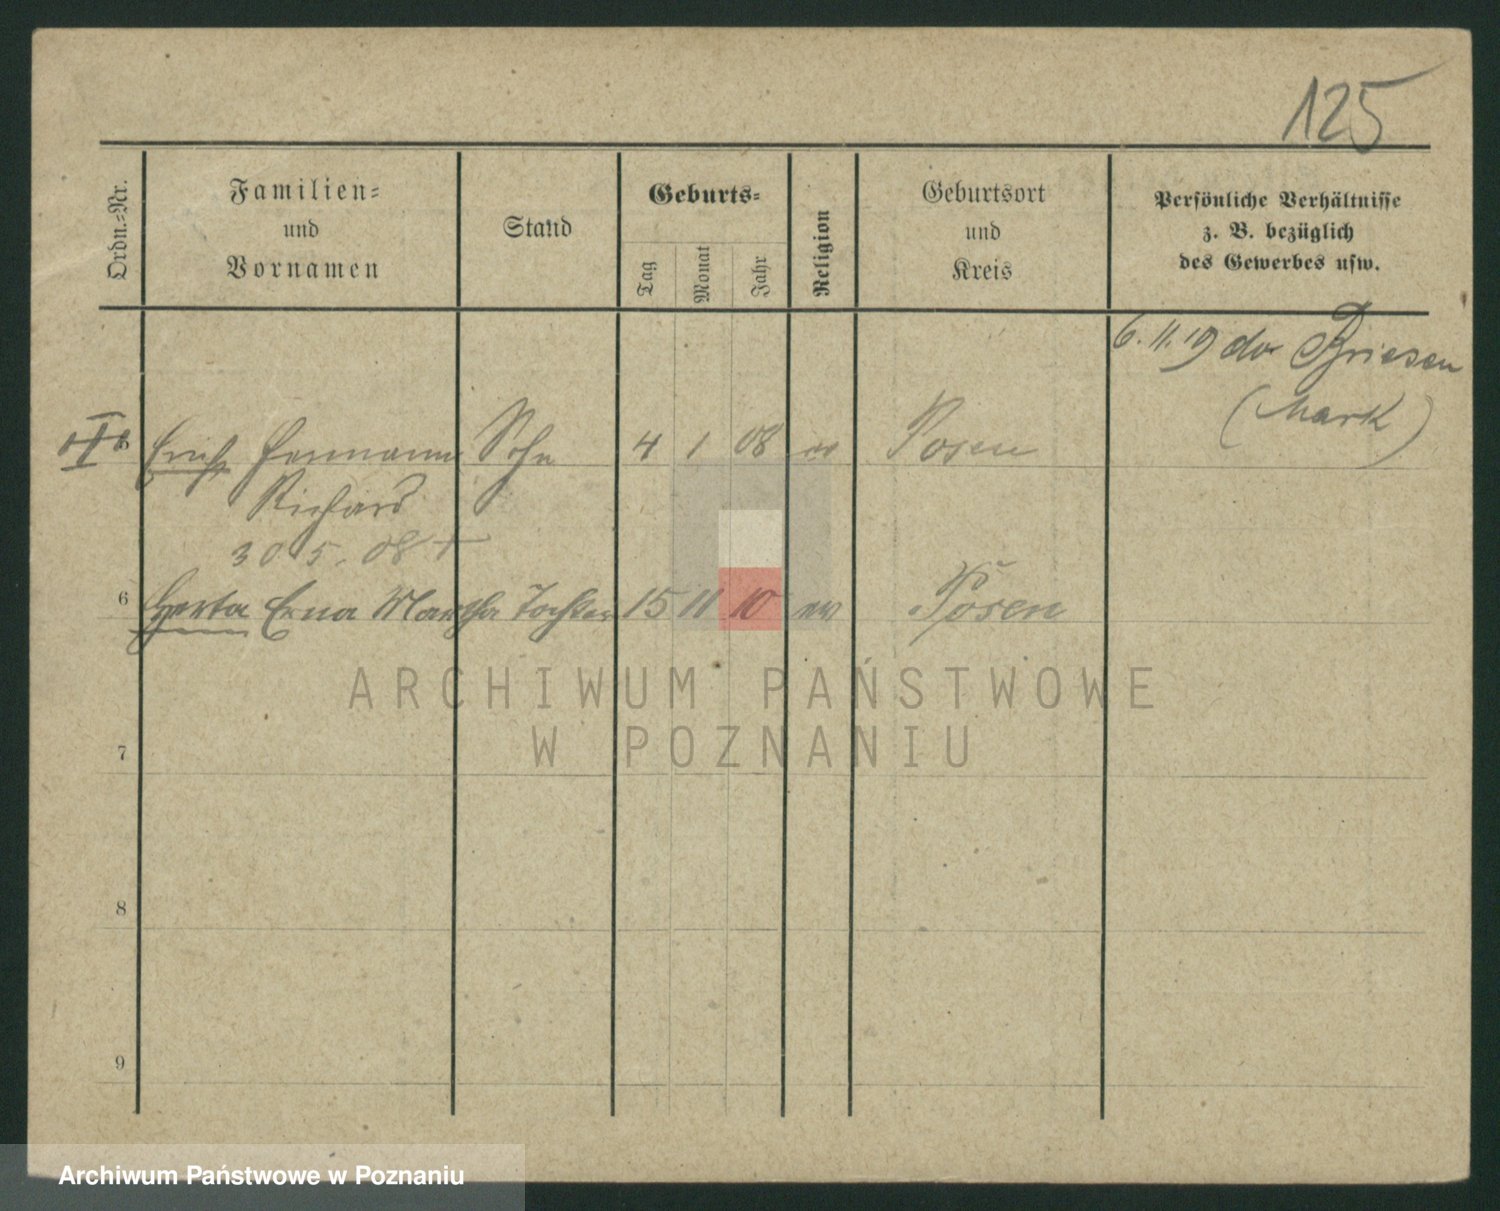 125
Ordn.=Nr.
Familien=
und
Vornamen
Stand
Geburts=
Tag
Monat
Jahr
Religion
Geburtsort
und
Kreis
Persönliche Verhältnisse
z. B. bezüglich
des Gewerbes usw.
6. 11. 19 do Briesen
(Mark)
5 Erich Hermann Sohn 4 1 08 ev Posen
Richard
30 5. 08 +
6 Herta Erna Martha Tochter 15 11 10 ev Posen
ARCHIWUM PAŃSTWOWE
W POZNANIU
7
8
9
Archiwum Państwowe w Poznaniu